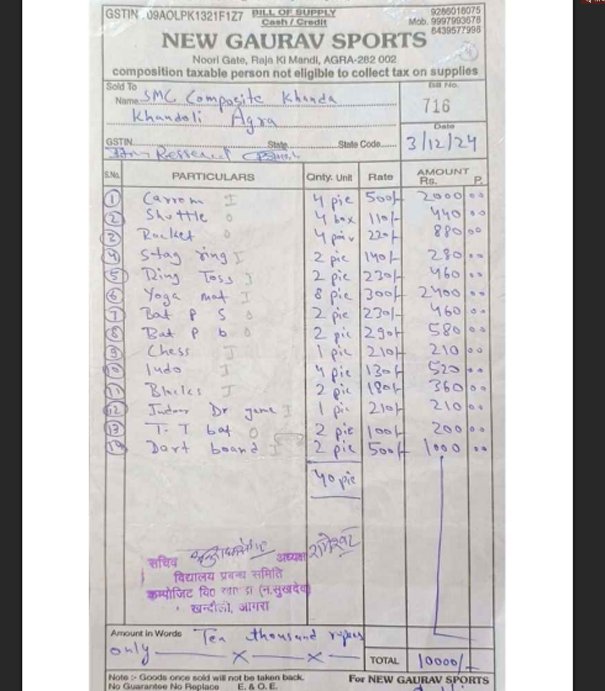 GSTIN. 09AOLPK1321F1Z7 BILL OF SUPPLY 9286018075
Cash / Credit Mob. 9997993678
8439577998
NEW GAURAV SPORTS
Noori Gate, Raja Ki Mandi, AGRA-282 002
composition taxable person not eligible to collect tax on supplies
Sold To Bill No.
Name SMC Composite Khanda 716
Khandoli Agra Date
GSTIN State State Code 3/12/24
S.No. PARTICULARS Qnty. Unit Rate AMOUNT
Rs. P.
1 Carrom I 4 pic 500/- 2000 00
2 Shuttle O 4 box 110/- 440 00
3 Racket O 4 pair 220/- 880 00
4 Stag ring I 2 pic 140/- 280 00
5 Ring Toss I 2 pic 230/- 460 00
6 Yoga mat I 8 pic 300/- 2400 00
7 Bat P S O 2 pic 230/- 460 00
8 Bat P b O 2 pic 290/- 580 00
9 Chess I 1 pic 210/- 210 00
10 Ludo I 4 pic 130/- 520 00
11 I 2 pic 180/- 360 00
12 Dr game I 1 pic 210/- 210 00
13 T.T bat O 2 pic 100/- 200 00
14 Dart board I 2 pic 500/- 1000 00
40 pic
सचिव अध्यक्ष
विद्यालय प्रबन्ध समिति
कम्पोजिट वि0
खन्दौली, आगरा
Amount in Words Ten thousand rupees
only x x TOTAL 10000/-
Note :- Goods once sold will not be taken back. For NEW GAURAV SPORTS
No Guarantee No Replace E. & O. E.